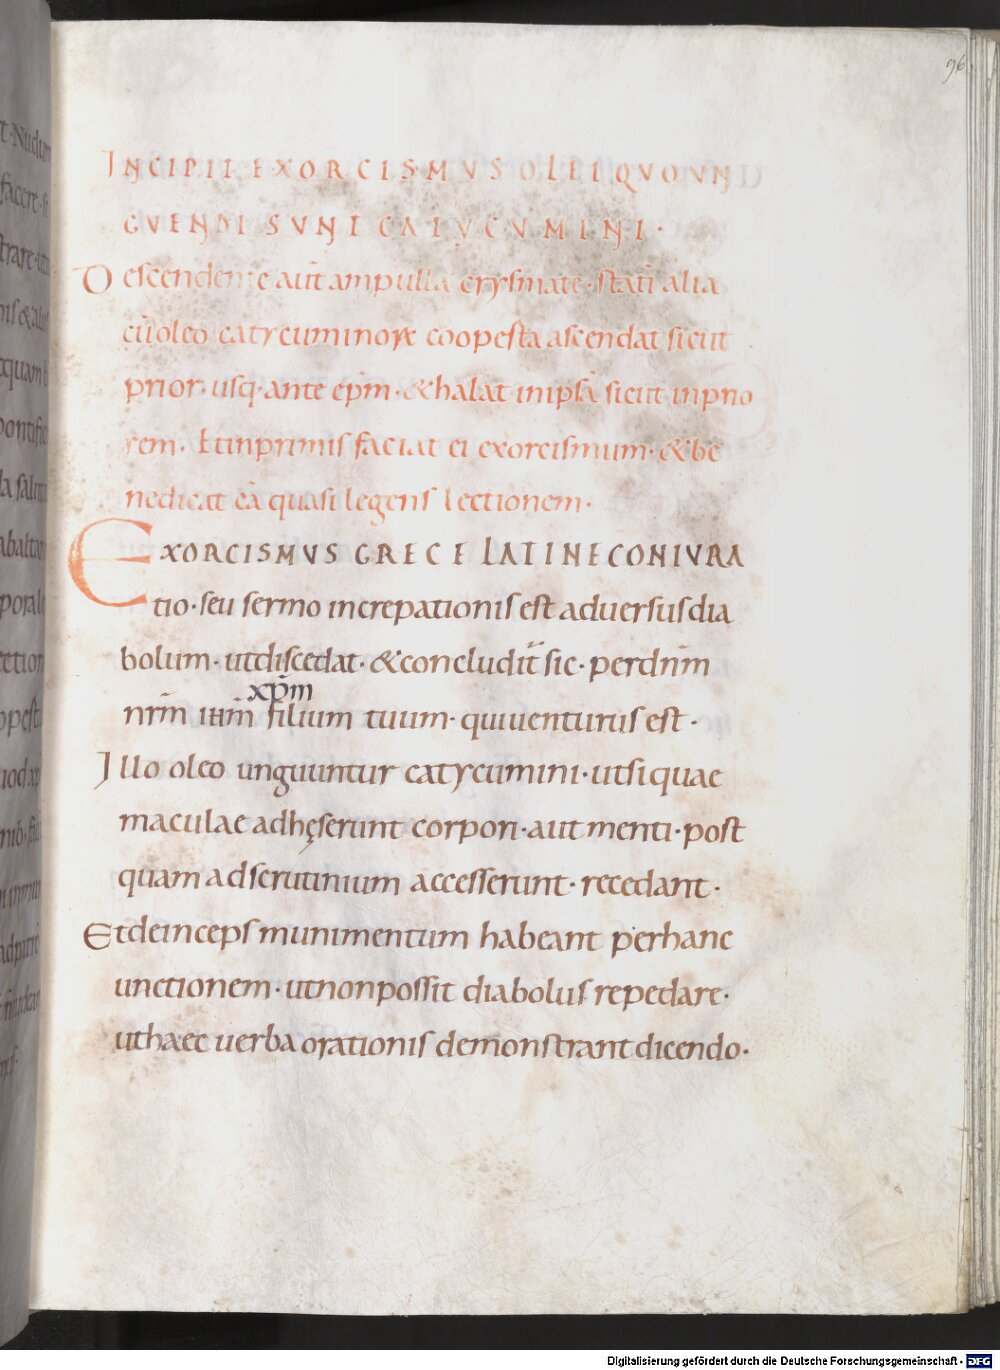 96
INCIPIT EXORCISMUS OLEI QUO UN
GUENDI SUNT CATYCUMINI·
Descendente aūt ampulla crysmate· statī alia
cū oleo catycuminoꝝ cooperta ascendat sicut
prior· usq· ante ep̄m· & halat in ipsā sicut in prio
rem. Et inprimis faciat ei exorcismum· & be
nedicat eā quasi legens lectionem·
EXORCISMUS GRECE LATINE CONIURA
tio· seu sermo increpationis est aduersus dia
bolum· ut discedat· & concludit̄ sic· per dn̄m
xp̄m
nr̄m ihm̄ filium tuum· qui uenturus est·
Illo oleo unguuntur catycumini· ut si quae
maculae adhęserunt corpori· aut menti· post
quam ad scrutinium accesserunt· recedant·
Et deinceps munimentum habeant per hanc
unctionem· ut non possit diabolus repedare·
ut haec uerba orationis demonstrant dicendo·
Digitalisierung gefördert durch die Deutsche Forschungsgemeinschaft - DFG